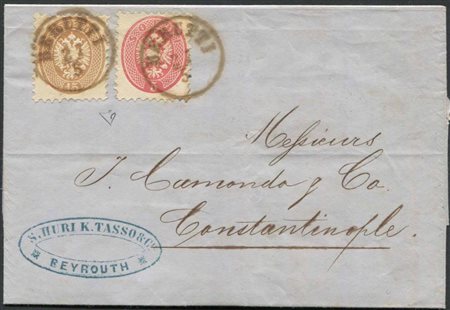 15
5
Messieurs
I. Camondo & Co.
Constantinople.
S. HURI K. TASSO & Co
BEYROUTH